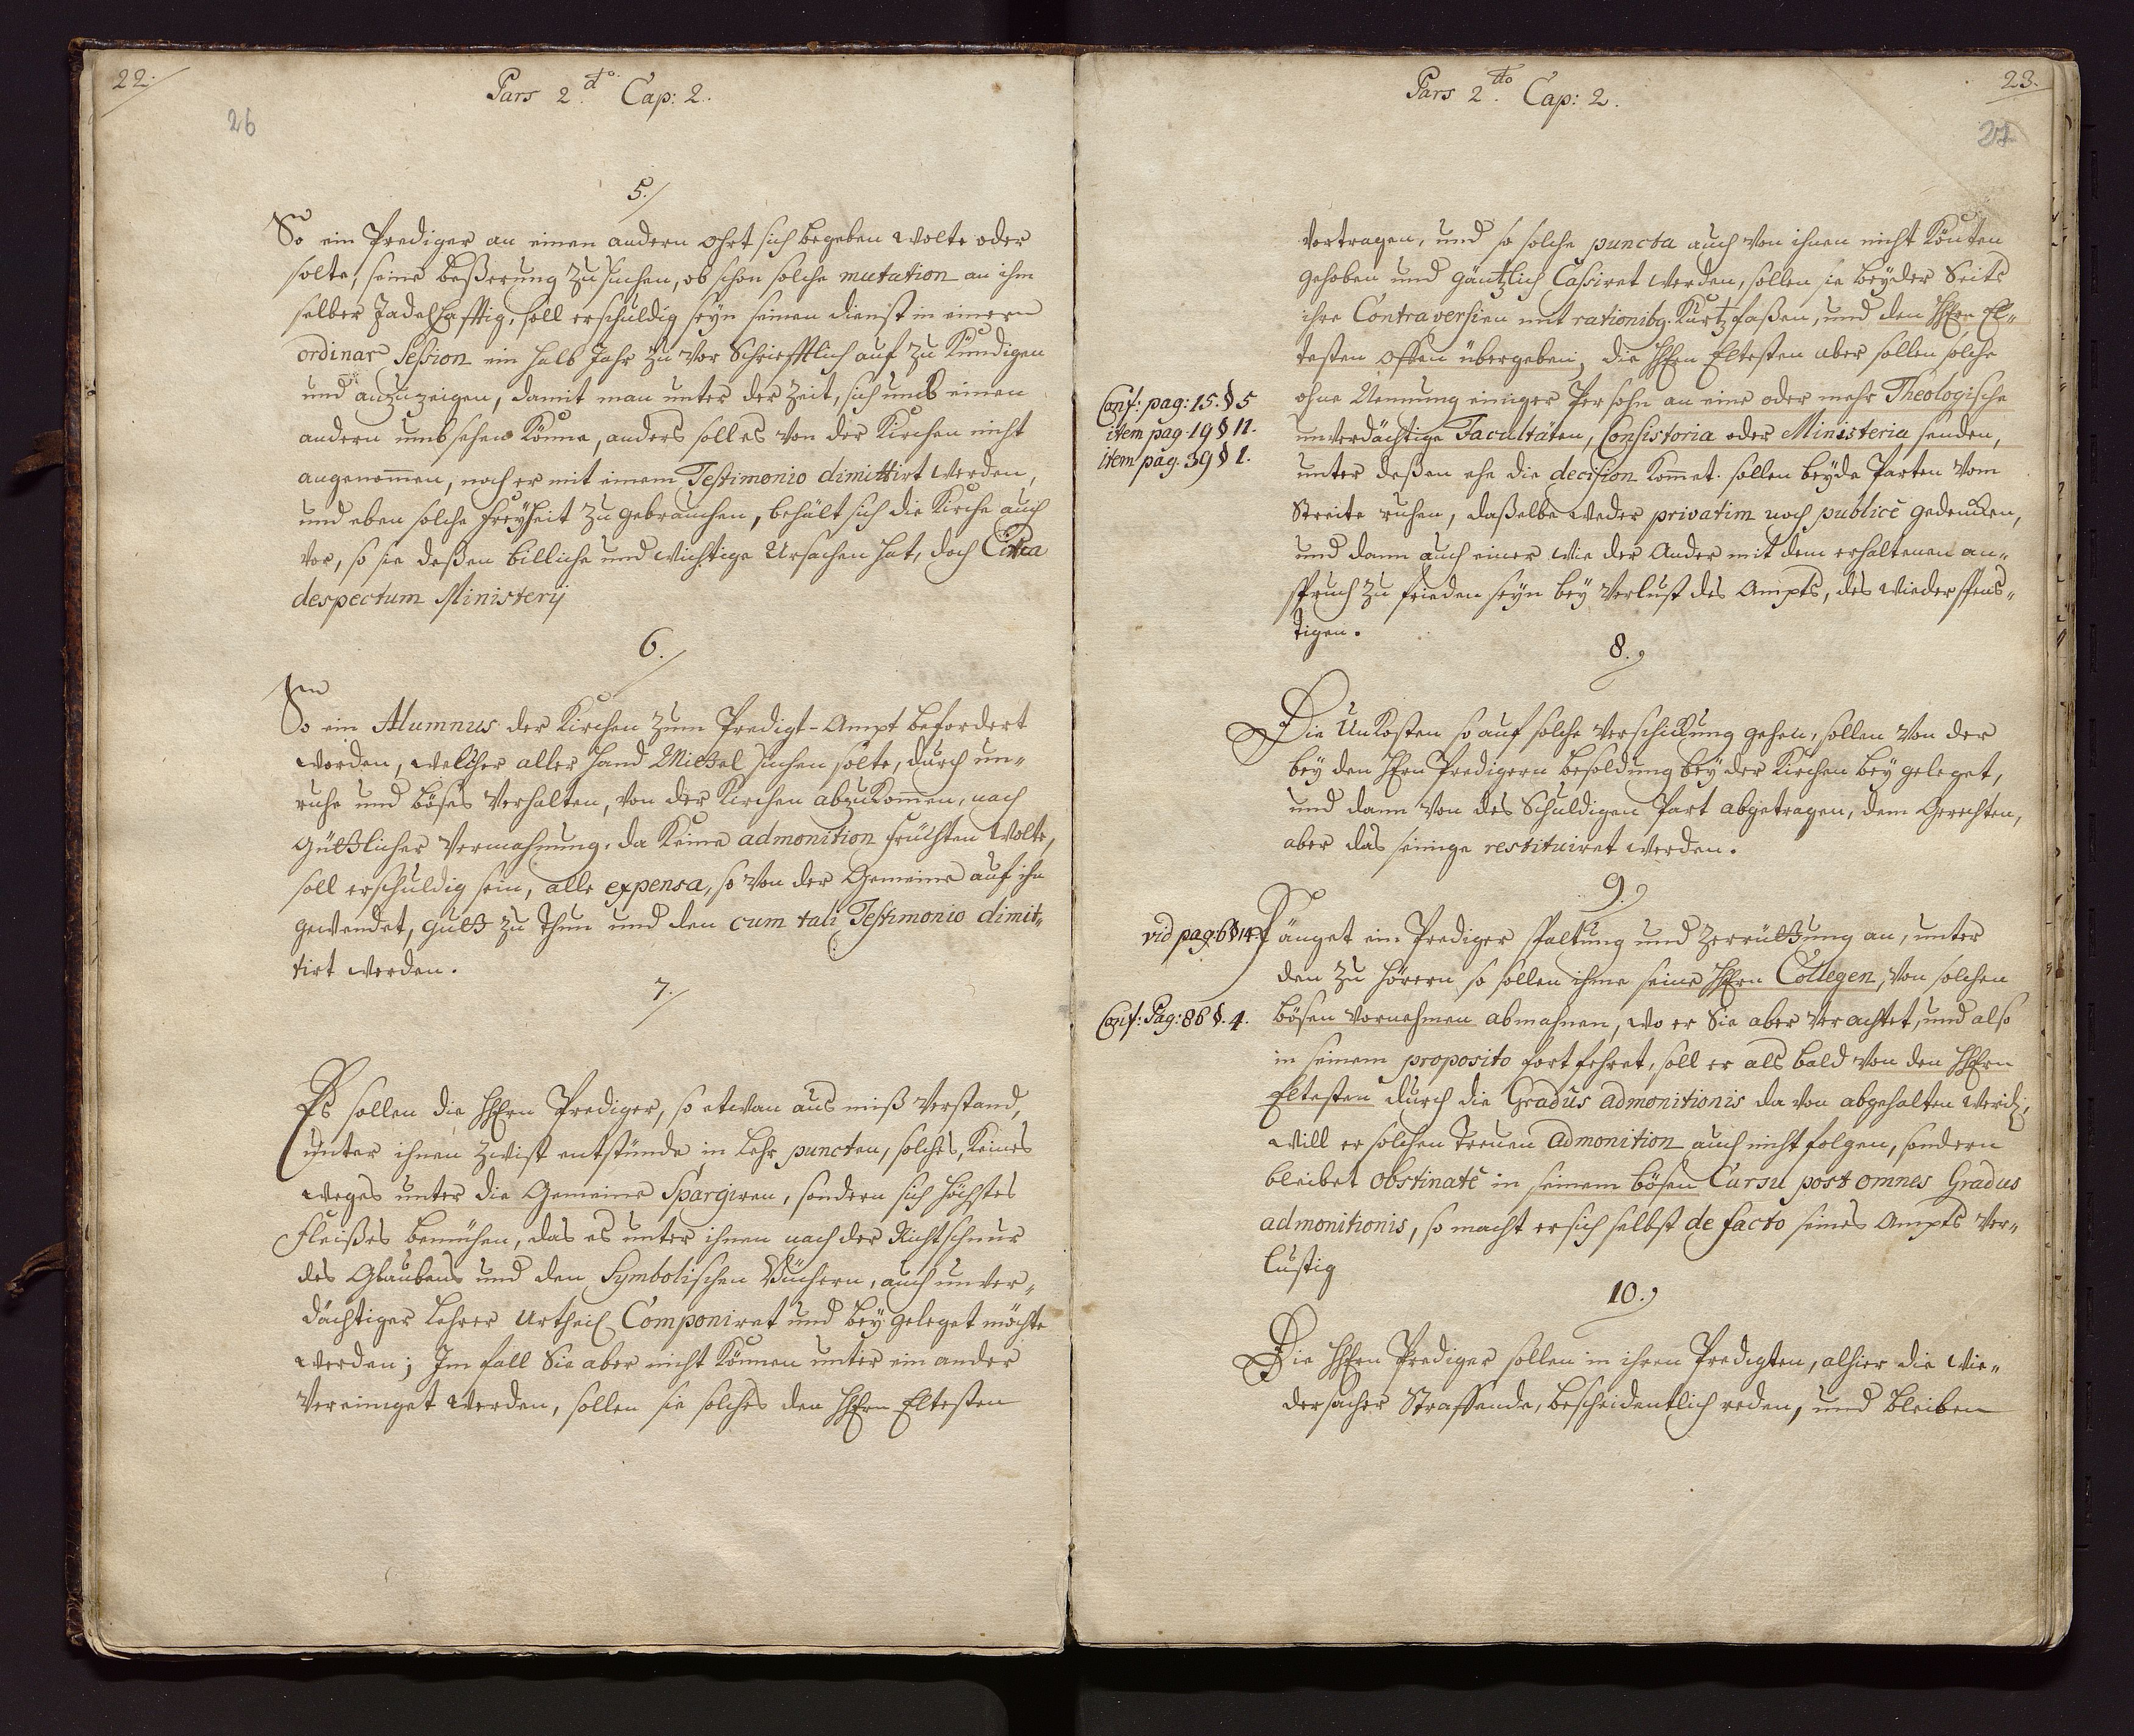 22.
26
Pars 2.do Cap: 2.
5./
So ein Prediger an einen andern ohrt sich begeben wolte oder
solte, seine beßerung zu suchen, ob schon solche mutation an ihm
selber Tadelhafftig, soll er schuldig seyn seinen dienst in einem
ordinar Session ein halb Jahr zu vor Schrifftlich auf zu Kündigen
und anzuzeigen, damit man unter der Zeit, sich umb einen
andern umbsehen Könne, anders soll es von der Kirchen nicht
angenom̄en, noch er mit einem Testimonio dimittirt werden,
und eben solche freyheit zu gebrauchen, behält sich die Kirche auch
vor, so sie deßen billiche und wichtige Ursachen hat, doch Citra
despectum Ministerij
6./
So ein Alumnus der Kirchen zum Predigt-Ampt befordert
worden, welcher aller hand Mittel suchen solte, durch un„
ruhe und böses Verhalten, von der Kirchen abzukom̄en, nach
gütlicher Vermahnung, da Keine admonition früchten wolte,
soll er schuldig sein, alle expensa, so von der Gemeine auf ihn
gewendet, gutt zu Thun und den cum tali Testimonio dimit„
tirt werden.
7./
Es sollen die HHrn Prediger, so etwan aus miß Verstand,
unter ihnen Zwist entstünde in Lehr puncten, solches, Keines
weges unter die Gemeine Spargiren, sondern sich höchstes
Fleißes bemühen, das es unter ihnen nach der Richtschnur
des Glaubens und den Symbolischen Büchern, auch unver„
dächtiger Lehrer Urtheil Componiret und beygeleget möchte
werden; Im fall Sie aber nicht Können unter ein ander
Vereiniget werden, sollen sie solches den HHrn Eltesten
Pars 2.do Cap: 2.
23.
27
Vortragen, und so solche puncta auch von ihnen nicht Könten
gehoben und gäntzlich Cassiret werden, sollen sie beyder Seits
ihre Contraversien mit rationibg. Kurtz faßen, und den HHrn El„
testen offen übergeben, die HHrn Eltesten aber sollen solche
Conf: pag: 15. § 5
ohne Nennung einiger Persohn an eine oder mehr Theologische
item pag. 19 § 11.
unverdächtige Facultäten, Consistoria oder Ministeria senden,
item pag. 39 § 1.
unter deßen ehe die decision Kom̄et. sollen beyde Parten vom
Streite ruhen, daßelbe weder privatim noch publicè gedencken,
und dann auch einer wie der Ander mit dem erhaltenen an„
spruch zu frieden seyn bey Verlust des Ampts, des wiederspens„
tigen.
8.
Die Unkosten so auf solche Verschickung gehen, sollen von der
bey den HHrn Predigern besoldung bey der Kirchen bey geleget,
und dann von des Schuldigen Part abgetragen, dem Gerechten,
aber das seinige restituiret werden.
9.
vid pag. 6 § 14.
Fänget ein Prediger spaltung und Zerrüttung an, unter
den zu hörern so sollen ihme seine HHrn Collegen, von solchen
Conf: Pag: 86 §. 4.
bösen Vornehmen abmahnen, wo er Sie aber verachtet, und also
in seinem proposito fortfehret, soll er als bald von den HHrn
Eltesten durch die Gradus admonitionis da von abgehalten werd.,
will er solchen treuen admonition auch nicht folgen, sondern
bleibet obstinatè in seinem bösen Cursu post omnes Gradus
admonitionis, so macht er sich selbst de facto seines Ampts Ver„
lustig
10.
Die HHrn Prediger sollen in ihren Predigten, alhier die wie„
dersacher Straffende, bescheidentlich reden, und bleiben